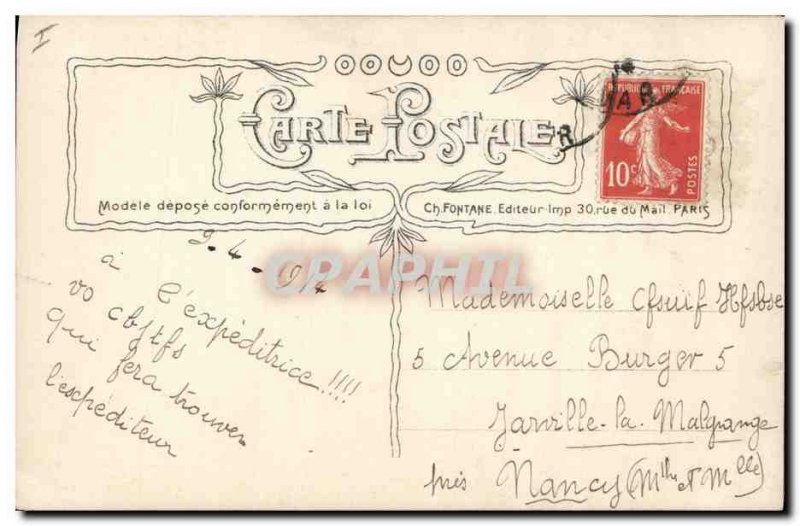 I
CARTE POSTALE
REPUBLIQUE FRANÇAISE
10c
POSTES
Modèle déposé conformément à la loi
Ch. FONTANE. Editeur-Imp 30, rue du Mail. PARIS
CPAPHIL
à l'expéditrice!!!!
vo cbjtfs
qui fera trouver
l'expéditeur
Mademoiselle Cfsuif Hfsbse
5 Avenue Burger 5
Jarville-la-Malgrange
près Nancy (Mthe et Mlle)